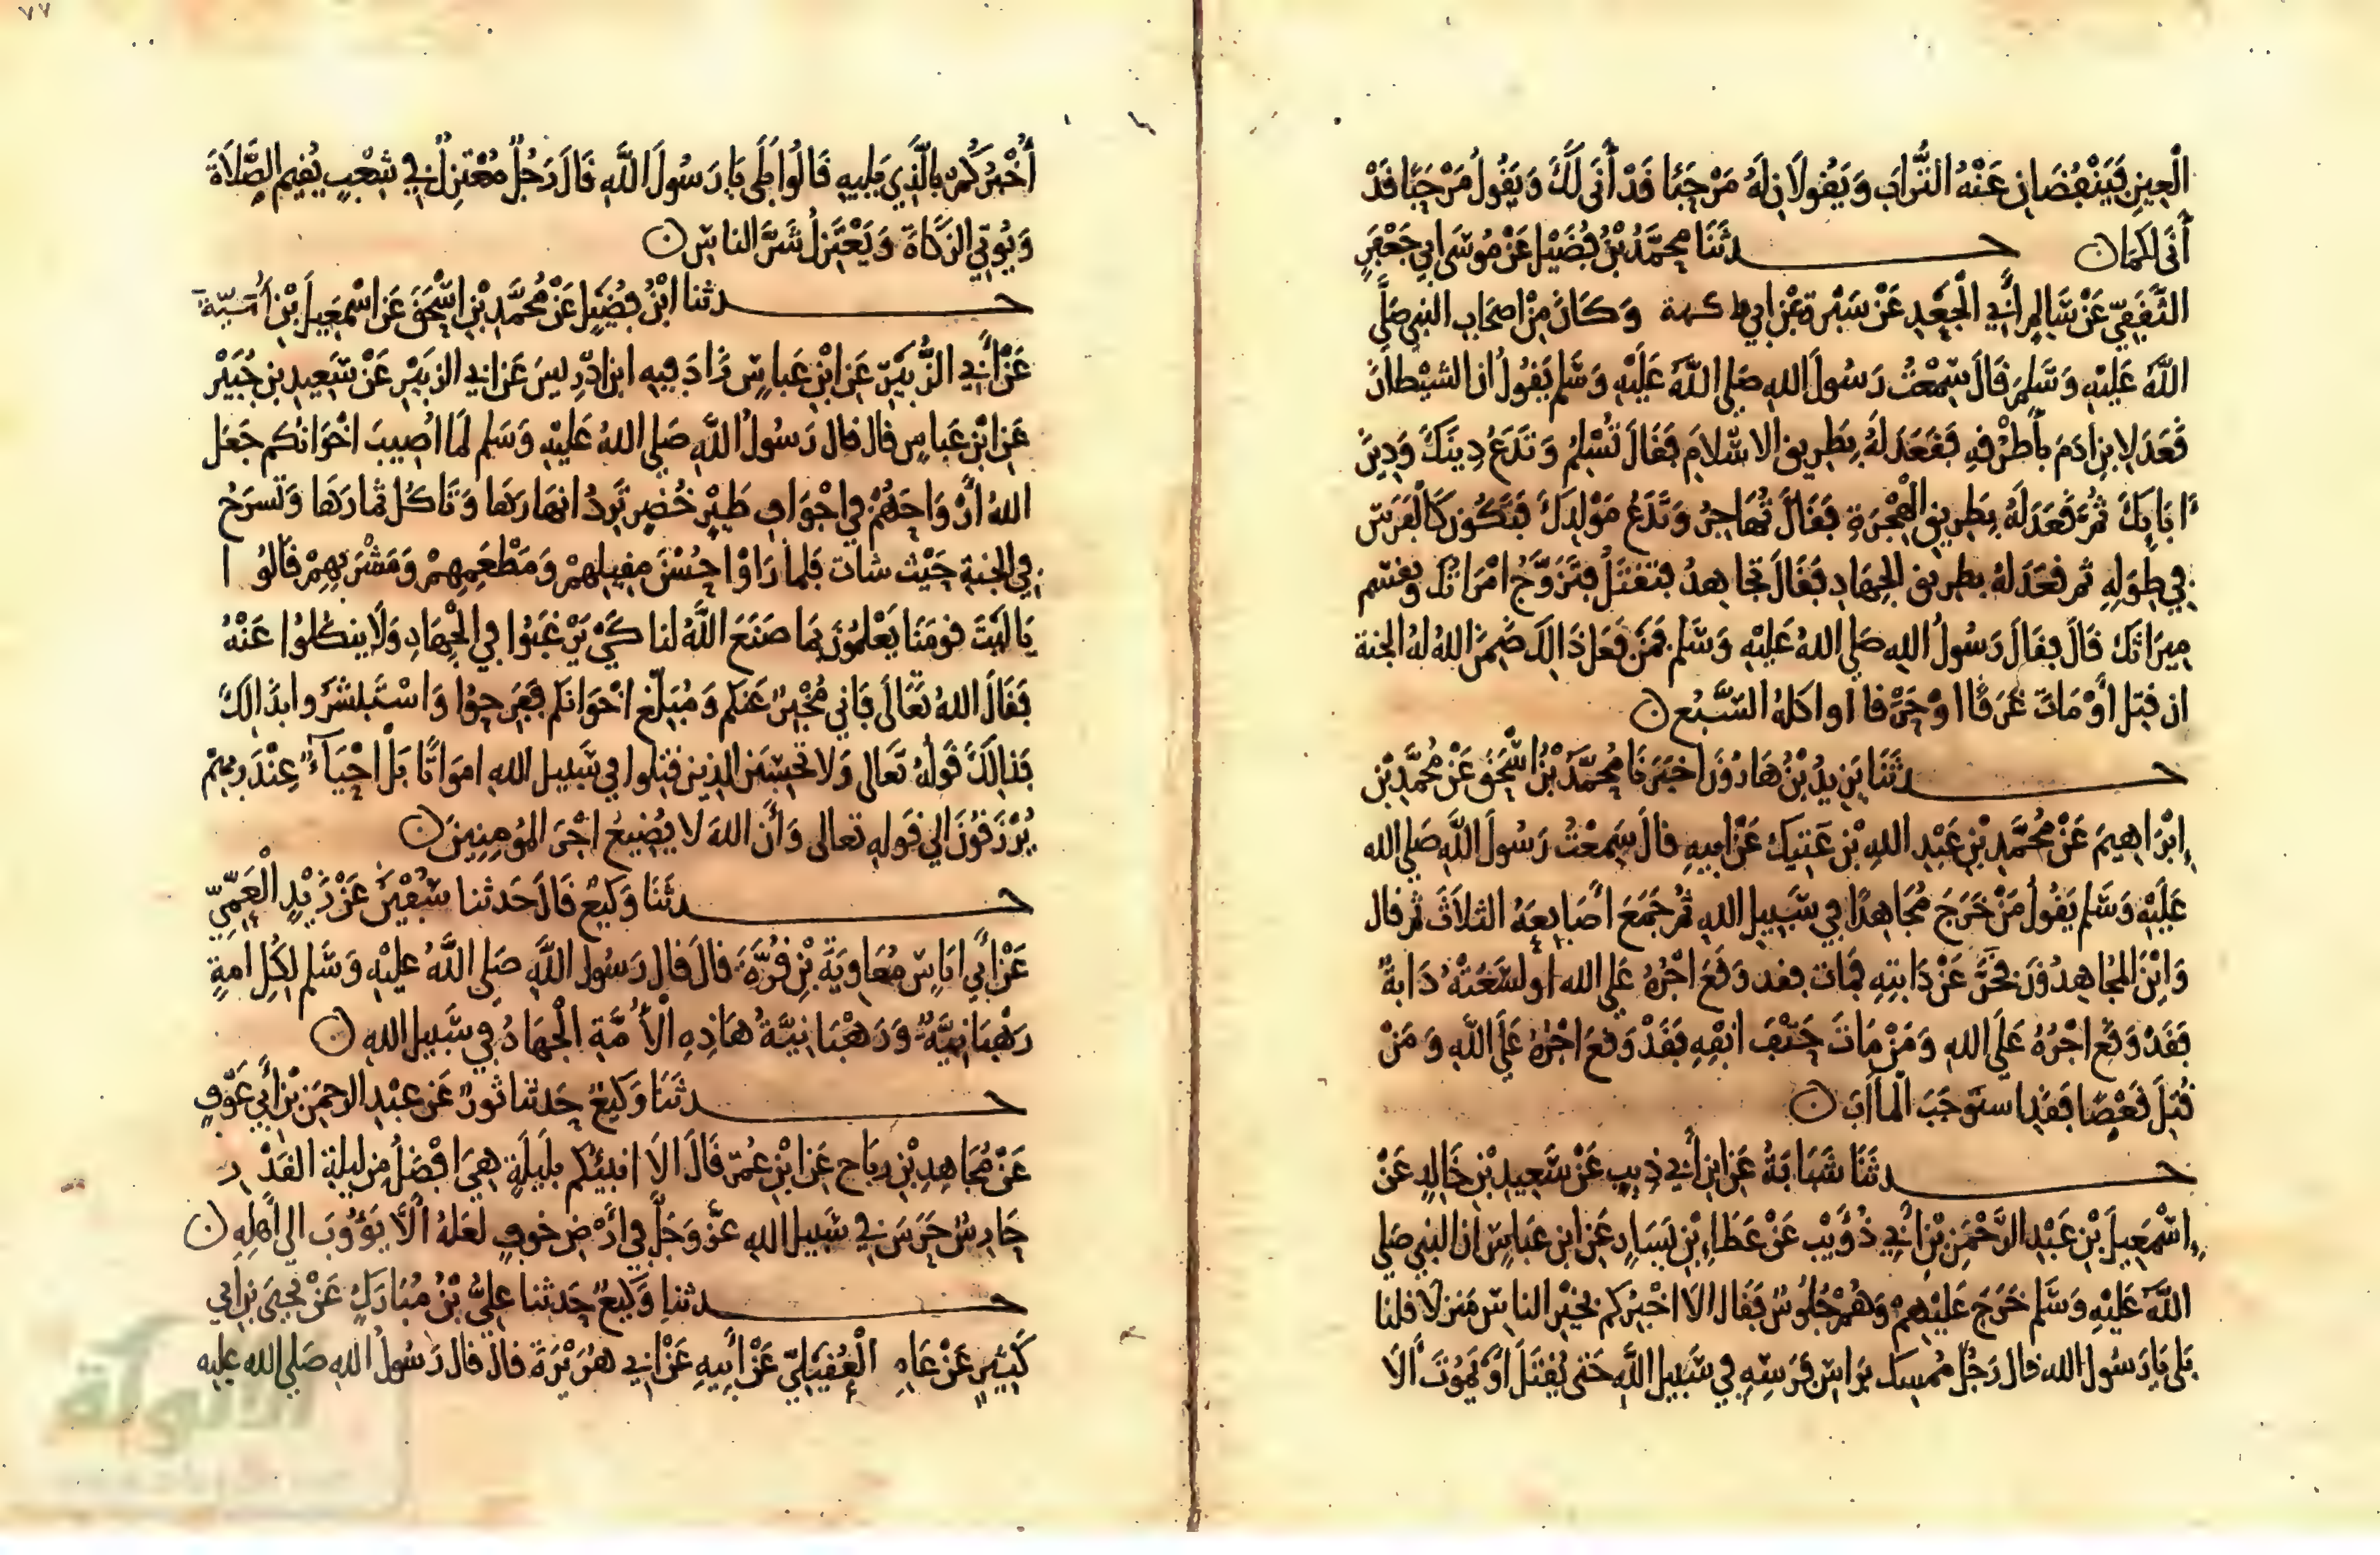 الْعِينِ فَيَنْفُضَانِ عَنْهُ التُّرَابَ وَيَقُولَانِ لَهُ مَرْحَبًا قَدْ أَنَى لَكَ وَيَقُولُ مَرْحَبًا قَدْ
أَنَى لكمان
حدثَنَا مُحَمَّدُ بْنُ فُضَيْلٍ عَنْ مُوسَى ابِي جَعْفَرٍ
الثَّقَفِيّ عَنْ سَالِمِ أَبِي الْجَعْدِ عَنْ سَبْرةَ بْنِ ابِي فاكهة وَكَانَ مِنْ اصْحَابِ النبي صَلَّى
اللَّهُ عَلَيْهِ وَسَلَّمَ قَالَ سَمِعْتُ رَسُولَ اللهِ صَلى اللَّهُ عَلَيْهِ وَسَلم يَقُولُ ان الشيْطَانَ
قَعَدَ لِابنِ ادَمَ بأَطْرُقِهِ فَقَعَدَ لَهُ بِطَرِيقِ الاسْلَامِ فَقَالَ تُسْلِمُ وَتَدَعُ دِينَكَ وَدِينَ
اابَايِكَ ثُمَّ قَعَدَ لَهُ بِطَرِيقِ الْهِجْرَةِ فَقَالَ تُهَاجِرُ وَتَدَعُ مَوْلِدَكَ فَتَكُون كَالْفَرَسِ
فِي طِوَلِهِ ثم قعَدَ لَهُ بطريق الْجِهَادِ فَقَالَ تجاهدُ فتقتَلُ فتَزَوَّجُ امْرَاتُك وَيقسم
مِيرَاثكَ قَالَ فقَالَ رَسُولُ اللهِ صَلى اللهُ عَلَيْهِ وَسَلم فَمَن فَعَلَ ذَالِكَ ضَمِنَ الله لهُ الجنة
ان قتِل أَوْ مَاتَ غَرَقًا اوْ حَرْقا اوا كلهُ السَّبُع ن
حدثَنَا يَزِيدُ بْنُ هَارُونَ اخبَرَنَا مُحَمَّدُ بْنُ اسْحَقَ عَنْ مُحَمَّدِ بْنِ
إِبْرَاهِيمَ عَنْ مُحَمَّدِ بْنِ عَبْدِ اللهِ بْنِ عَتِيكٍ عَنْ ابِيهِ قالَ سَمِعْتُ رَسُولَ اللَّهِ صَلى الله
عَلَيْهِ وَسَلم يَقُولُ مَنْ خَرَجَ مُجَاهِدًا فِي سَبِيلِ اللهِ ثُمَّ جَمَعَ أَصَابِعَهُ الثلَاثَ ثم قال
وَايْنَ الْمُجَاهِدُونَ فَخَرَّ عَنْ دَابتِهِ فمَات فقد وَقَعَ اجْرُهُ عَلى الله او لسَعَتْهُ دَابةٌ
فَقَدْ وَقَعَ اجْرُهُ عَلَى اللهِ وَمَنْ مَاتَ حَتْفَ انفِهِ فَقَدْ وَقَعَ اجْرُهُ عَلَى اللَّهِ وَمَنْ
قُتِلَ قَعْصًا فَقَدِ استَوجَبَ الْمَاآبَ ن
حدثَنَا شَبَابَةُ عَنِ ابنِ أَبِي ذِيبٍ عَنْ سَعِيدِ بْنِ خَالِدٍ عَنْ
إِسْمَعِيلَ بْنِ عَبْدِ الرَّحْمَنِ بْنِ أَبِي ذُؤَيْبٍ عَنْ عَطَاءِ بْنِ يَسَارٍ عَنِ ابنِ عَباسٍ ان النبي صَلى
اللَّهُ عَلَيْهِ وَسَلم خَرَجَ عَلَيْهِمْ وَهُمْ جُلُوسٌ فَقَال الَا اخْبِرُكُم بخيْرِ الناسِ مَنزلًا قلنا
بَلى يَا رَسُولَ الله قال رَجُل مُمسِك بِرَاسِ فَرَسِهِ فِي سَبِيلِ اللَّهِ حَتى يُقْتَلَ أَوْ يَمُوتَ أَلَا
٧٧
أُخْبِرُكُمْ بِالَّذِي يَلِيهِ قَالُوا بَلَى يَا رَسُولَ اللَّهِ قَالَ رَجُلٌ مُعْتَزِلٌ فِي شِعْبٍ يُقِيم الصَّلَاةَ
وَيُوتِي الزَّكَاةَ وَيَعْتَزِلُ شَرَّ الناسِ ن
حدثنا ابْنُ فُضَيْلٍ عَنْ مُحَمَّدِ بْنِ اسْحَقَ عَنِ اسْمَعِيلَ بْنِ أُمَيَّةَ
عَنْ أَبِي الزُّبَيْرِ عَنِ ابْنِ عَباسٍ زَادَ فِيهِ ابن ادْرِيسَ عَن ابي الزبَيْرِ عَنْ سَعِيدِ بنِ جُبَيْرٍ
عَنِ ابْنِ عَباسٍ قال قال رَسُولُ اللَّهِ صَلى اللهُ عَلَيْهِ وَسَلم لَمَا اصِيبَ اخْوَانُكُم جَعَلَ
اللهُ أَرْوَاحَهُمْ فِي اجْوَافِ طَيْرٍ خُضْرٍ تَرِدُ انهَارَهَا وَتَاكُل ثمارَهَا وَتَسرَحُ
فِي الجَنةِ حَيْث شات فلما رَاوْا حُسْنَ مقِيلِهِمْ وَمَطْعَمِهِمْ وَمَشْرَبِهِمْ قَالُوا
يَا لَيْتَ قومَنَا يَعْلَمُونَ بمَا صَنَعَ اللَّهُ لنا كَيْ يَرْغَبُوا فِي الْجِهَادِ وَلَا ينكلوُا عَنْهُ
فَقَالَ اللهُ تَعَالَى فَانِي مُخْبِرٌ عَنكم وَمُبَلِّغ اخْوَانكم فَفَرِحوُا وَاسْتَبشَرُوا بذَالِكَ
فذَالِكَ قَولُهُ تَعَالى وَلا تحْسَبَن الذِين قتِلُوا فِي سَبيلِ اللهِ امْوَاتًا بَلْ احْيَآءٌ عِنْدَ رَبهِمْ
يُرْزَقُونَ إلي قَولهِ تعالى وَأَن اللهَ لا يُضِيعُ اجْرَ المُومِنِينَ ن
حدثَنَا وَكِيعٌ قَالَ حَدثنا سُفْيَنُ عَنْ زَيْدٍ الْعَمِّيِّ
عَنْ أَبِي ايَاسٍ مُعَاوِيَةَ بْنِ قُرَّةَ قالَ قال رَسُول اللَّهِ صَلى اللَّهُ عليْهِ وَسَلم لِكُلِ امةٍ
رَهْبَانِيَّةٌ وَرَهْبَانِيَّةُ هَاذِهِ الْأُمَّةِ الْجِهَادُ فِي سَبِيل اللهِ ن
حدثَنَا وَكِيعٌ حَدثنا ثورٌ عَن عبْدِ الرحمَنِ بْنِ أَبِي عَوْفٍ
عَنْ مُجَاهِدِ بْنِ رِبَاحٍ عَنِ ابْنِ عُمَرَ قَالَ الَا انبئكُم بلَيلَةٍ هِيَ افْضَلُ مِن لَيلةِ القَدْر
حَارِسٌ حَرَسَ فِي سَبِيلِ اللهِ عَزَّ وَجَلَّ فِي أَرْضِ خَوفٍ لَعَلهُ أَلَّا يَؤُوبَ الي أَهلِهِ ن
حدثنا وَكِيعٌ حَدثنا عَلِيُّ بْنُ مُبَارَكٍ عَنْ يَحيَى بْنِ ابِي
كَثِيرٍ عَنْ عَامِرٍ الْعُقَيْلِيّ عَنْ أَبِيهِ عَنْ ابِي هُرَيْرَةَ قال قال رَسُولُ اللهِ صَلى الله عليه
الألوكة